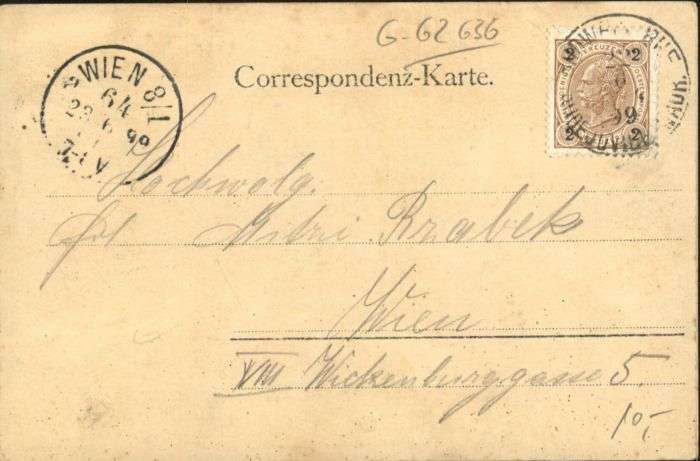 G-62 636
Correspondenz-Karte.
WIEN 8/1
64
99
2 2
2 2
99
Hochwolg.
Frl Mitzi Brabek
Wien
VIII Wickenburggasse 5.
10,-